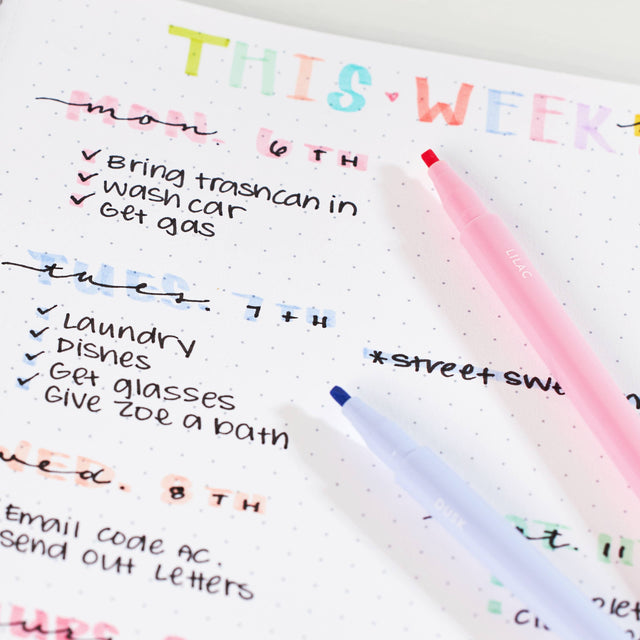 THIS WEEK
mon. 6TH
Bring trashcan in
wash car
Get gas
LILAC
tues. 7TH
Laundry
Dishes
Get glasses
Give Zoe a bath
*street
wed. 8TH
Email code AC.
send out Letters
DUSK
11